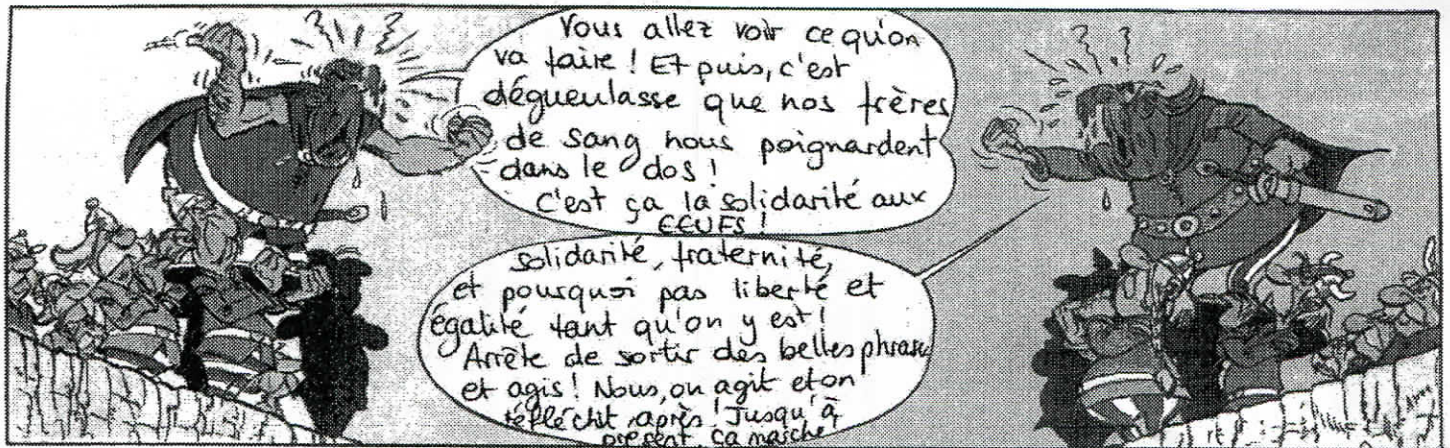 Vous allez voir ce qu'on
va faire ! Et puis, c'est
dégueulasse que nos frères
de sang nous poignardent
dans le dos !
C'est ça la solidarité aux
solidarité, fraternité,
et pourquoi pas liberté et
égalité tant qu'on y est !
Arrête de sortir des belles phrase
et agis ! Nous, on agit et on
réfléchit après ! Jusqu'à
présent, ça marche